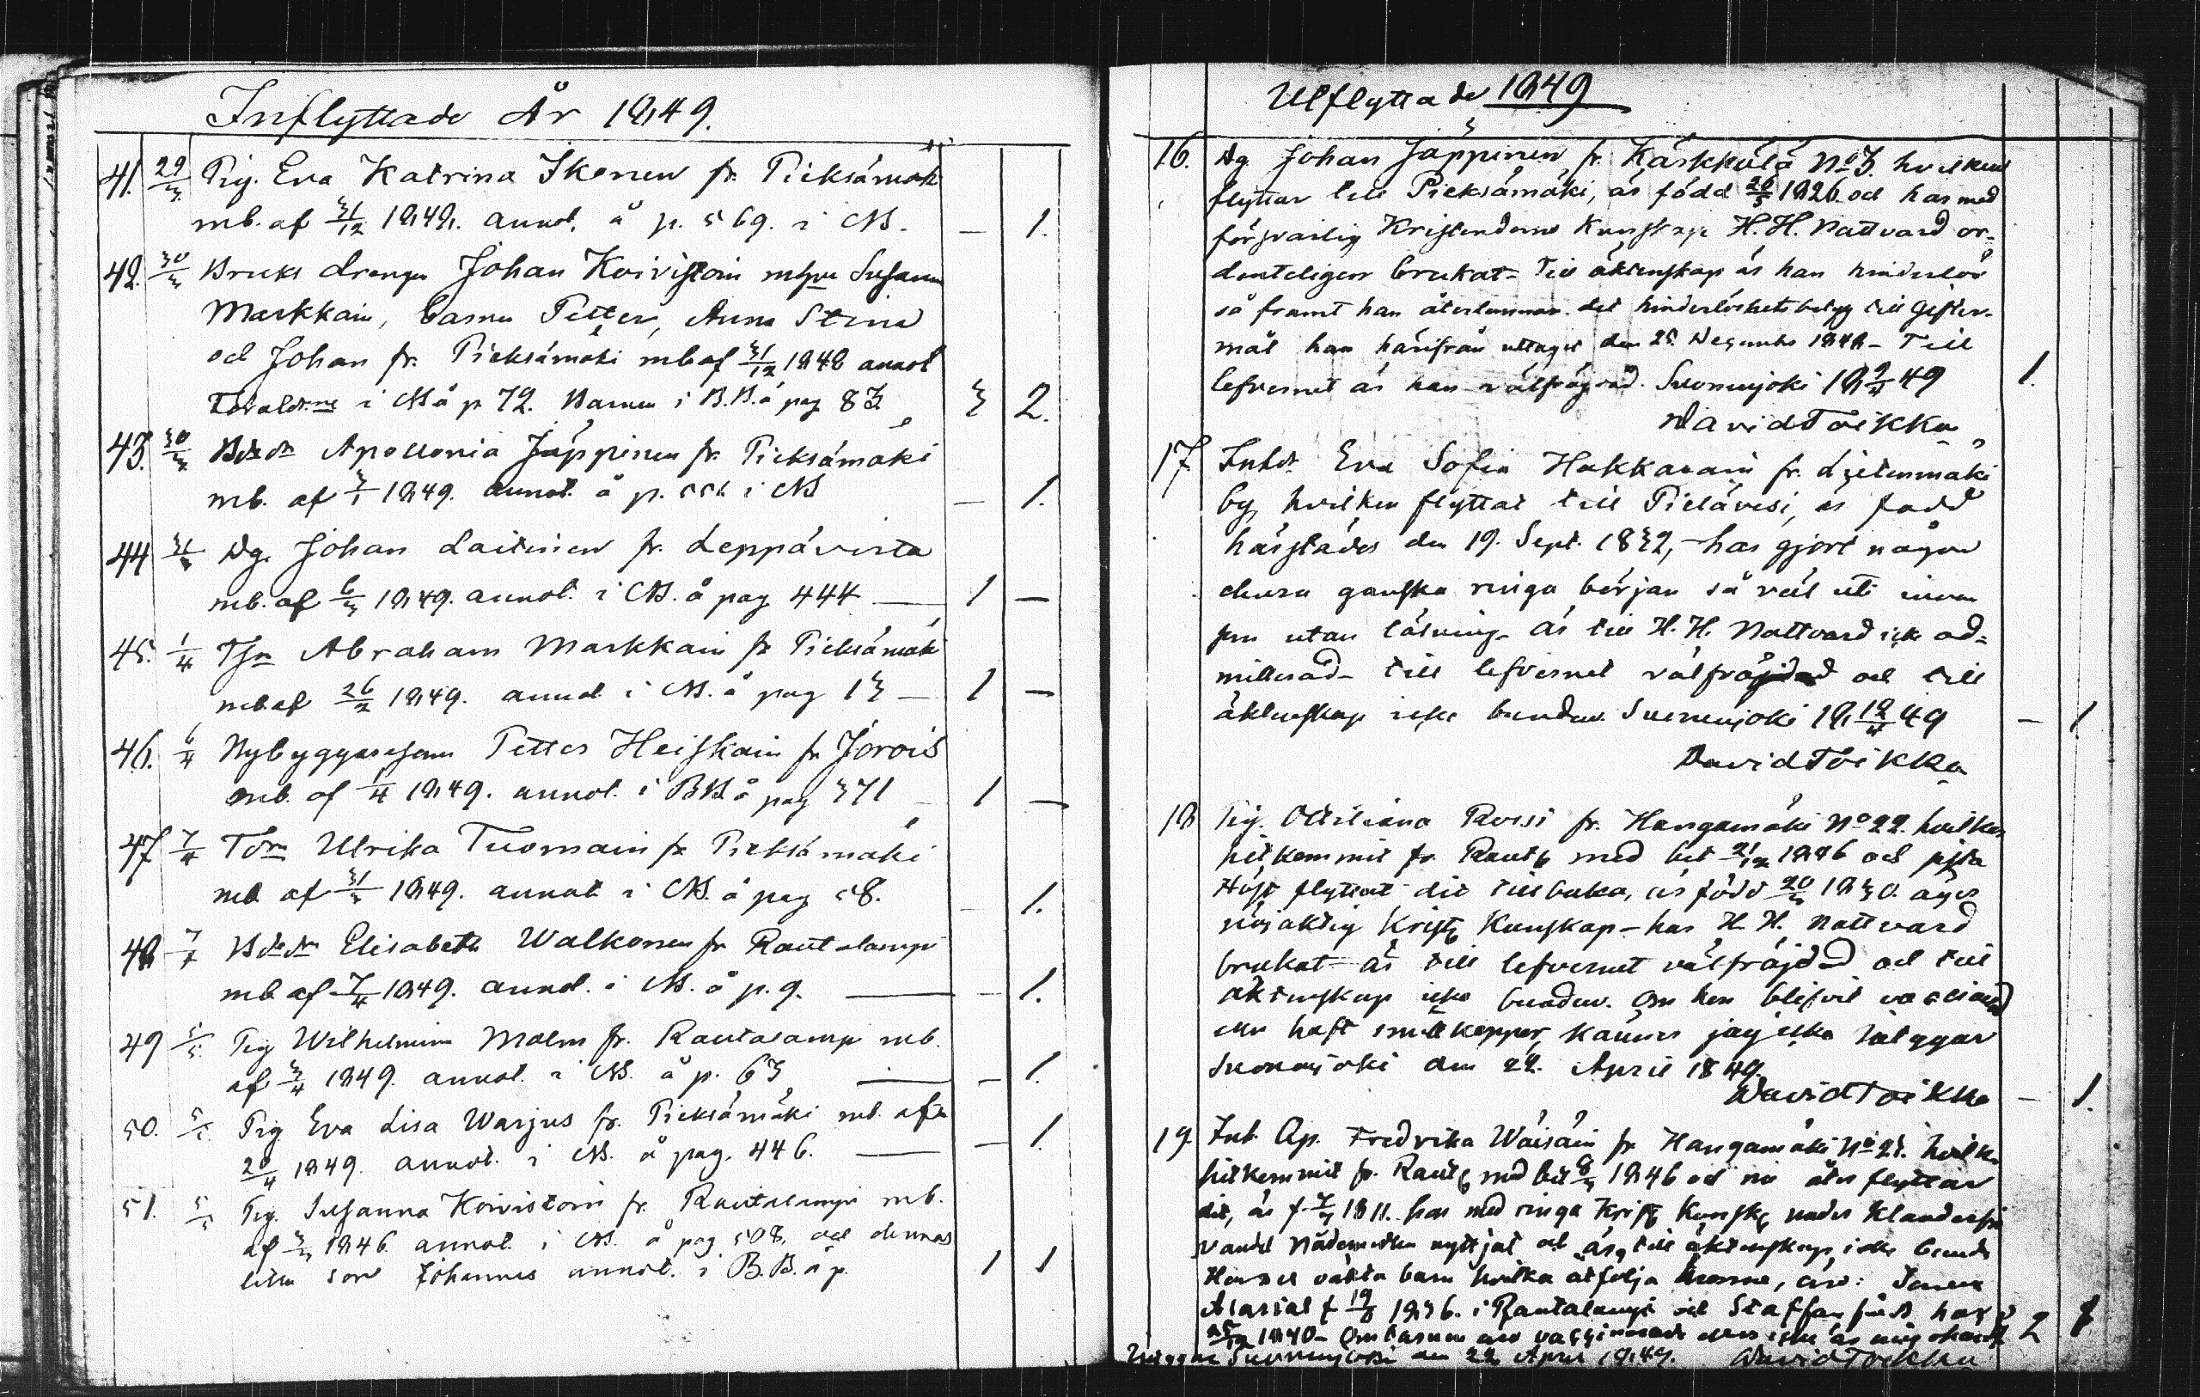 Inflyttade År 1849.
41. 29/3 Pig. Eva Katrina Ikonen fr. Pieksämäki
mb. af 31/12 1849. annot. å p. 569. i NB. — 1.
42. 30/3 Bruks drengen Johan Koivistoin m hu Susanna
Markkain, barnen Petter, Anna Stina
och Johan fr. Pieksämäki mb af 31/12 1848 annot
Föräldrne i NB å p 72. Barnen i B.B. å pag 83. 3 2.
43. 30/3 Apollonia Jäppinen fr. Pieksämäki
mb. af 1849. annot. å p. i NB — 1.
44 31/3 Dg. Johan Laitinen fr. Leppävirta
mb. af 6/3 1849. annot. i NB. å pag 444 — 1 —
45. 1/4 Abraham Markkain fr Pieksämäki
mb. af 26/2 1849. annot i NB. å pag 13 — 1 —
46. 6/4 Nybyggaresonen Petter Heiskain fr Jorois
mb. af 1/4 1849. annot. i BB å pag 371 — 1 —
47 7/4 Ulrika Tuomain fr Pieksämäki
mb af 31/3 1849. annot i NB. å pag 58. — 1.
48 7/4 Elisabeth Walkonen fr Rautalampi
mb af 7/4 1849. annot. i NB. å p. 9. — 1.
49 5/5 Pig Wilhelmina Malm fr. Rautalampi mb.
af 3/4 1849. annot. i NB. å p. 63 — 1.
50. 5/5 Pig Eva Lisa Warjus fr. Pieksämäki mb. af
29/4 1849. annot. i NB. å pag. 446. — 1.
51. 5/5 Pig. Susanna Koivistoin fr. Rautalampi mb.
af 1846. annot. i NB. å pag 508. och dennes
son Johannes annot. i B.B. å p. 1 1
Utflyttade 1849
16. Dg. Johan Jäppinen fr. Kärkkälä No 3. hvilken
flyttar till Pieksämäki, är född 26/5 1826 och har med
försvarlig Kristendoms Kunskap H. H. Nattvard or-
denteligen brukat - Till äktenskap är han hinderlös
så framt han återlemnar det hinderlöshetsbetyg till Gifter-
mål han härifrån uttaget den 25 December 1848 - Till
lefvernet är han välfrägdad. Suonenjoki 18 9/4 49 1.
David Toikka
17 Inhs. Eva Sofia Hakkarain fr. Lietenmäki
by, hvilken flyttat till Pielävesi, är född
härstädes den 19. Sept. 1832, - har gjort någon
ehuru ganska ringa början så väl uti innan
som utan läsning. är till H. H. Nattvard icke ad-
mitterad - till lefvernet välfräjdad och till
äktenskap icke bunden. Suonenjoki 18 12/4 49 — 1.
David Toikka
18 Pig. Ottiliana Rossi fr. Hangamäki No 22. hvilken
hitkommit fr. Raut. med bet 21/12 1846 och sista
Höst flyttat dit tillbaka, är född 20/3 1830. äger
nöjaktig Krist. Kunskap - har H. H. Nattvard
brukat - är till lefvernet välfräjdad och till
äktenskap icke bunden. Om hon blifvit vaccinerad
eller haft smittkoppor, känner jag icke
Suonenjoki den 22. April 1849.
David Toikka — 1.
19. Inh. Fredrika Wäisäin fr Hangamäki No 25. hvilken
hitkommit fr. Raut. med bet 8/3 1846 och nu åter flyttar
dit, är f. 1811. har med ringa Krist. Kunsk. under klanderfri
vandel Nådemedlen nyttjat och är till äktenskap icke bunden
Hennes barn hvilka åtfölja henne, äro: Sonen
1836. i Rautalampi och Staffan född här
1840 - Om barnen äro vaccinerade eller icke är mig okändt 2 1
Suonenjoki den 22 April 1849. David Toikka